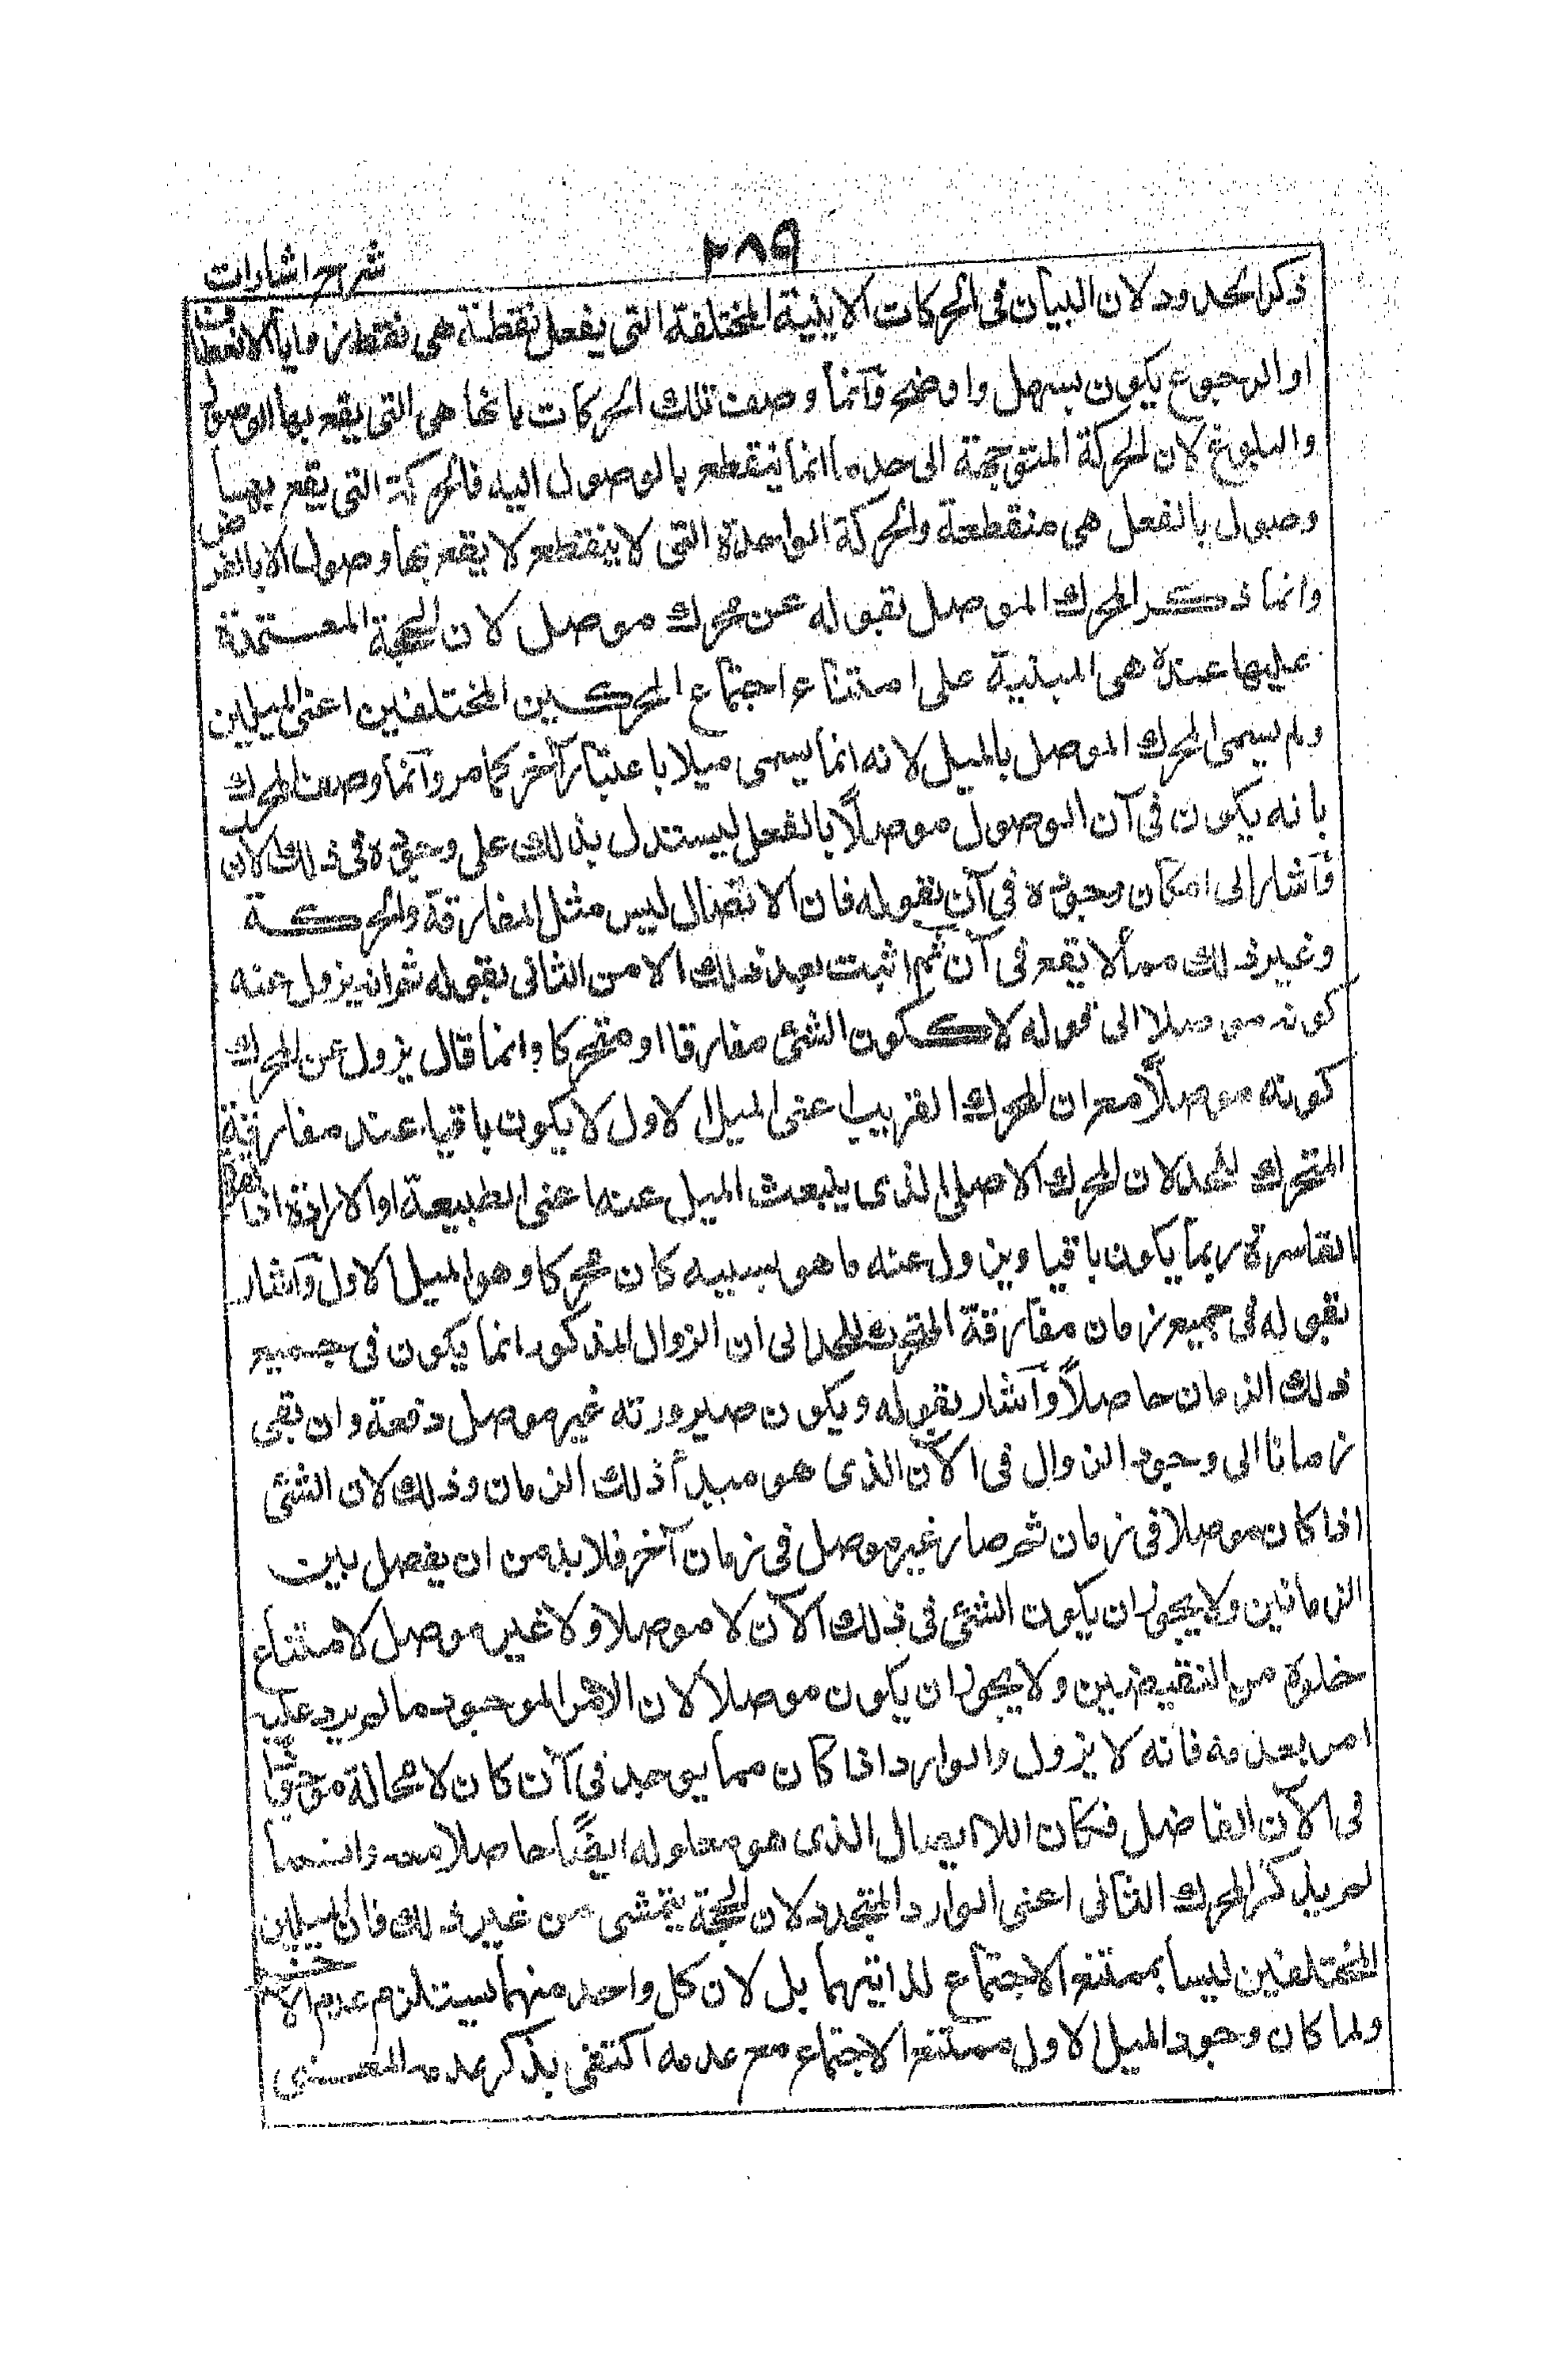 ٢٨٩
شرح اشارات
ذكر الحدود لان البيان فى الحركات الاينية المختلفة التى يفعل نقطة هى نقط زوايا الانعطاف
او الرجوع يكون بسهل واوضح وآنما وصف تلك الحركات بانها هى التى يقع بها الوصول
والبلوغ لان الحركة المتوجهة الى حد ما انما ينقطع بالوصول اليه فالحركة التى يقع بها
وصول بالفعل هى منقطعة والحركة الواحدة التى لا ينقطع لا يقع بها وصول الا بالفرض
وانما ذكر المحرك الموصل بقوله عن محرك موصل لان الحجة المعتمدة
عليها عنده هى المبنية على امتناع اجتماع المحركين المختلفين اعنى الميلين
ولم يسمى المحرك الموصل بالميل لانه انما يسمى ميلا باعتبار آخر كما مر وآنما وصف المحرك
بانه يكون فى آن الوصول موصلاً بالفعل ليستدل بذلك على وجوده فى ذلك الآن
وآشار الى امكان وجوده فى آن بقوله فان الاتصال ليس مثل المفارقة والحركة
وغير ذلك مما لا يقع فى آن ثم اثبت بعد ذلك الامن الثانى بقوله ثم انه يزول عنه
كونه موصلا الى قوله لا ككون الشئ مفارقا او متحركا وانما قال يزول عن المحرك
كونه موصلاً مع ان المحرك القريب اعنى الميل الاول لا يكون باقيا عند مفارقة
المتحرك للحد لان المحرك الاصلى الذى ينبعث الميل عنه اعنى الطبيعة او الارادة او القوة
القاسرة ربما يكون باقيا ويزول عنه ما هو بسببه كان محركا وهو الميل الاول وآشار
بقوله فى جميع زمان مفارقة المتحرك للحد الى ان الزوال المذكور انما يكون فى جميع
ذلك الزمان حاصلاً وآشار بقوله ويكون صيرورته غير موصل دفعة وان بقى
زمانا الى وجود الزوال فى الآن الذى هو مبدأ ذلك الزمان وذلك لان الشئ
اذا كان موصلا فى زمان ثم صار غير موصل فى زمان آخر فلا بد من ان يفصل بين
الزمانين ولا يجوز ان يكون الشئ فى ذلك الآن لا موصلا ولا غير موصل لامتناع
خلوه من النقيضين ولا يجوز ان يكون موصلا لان الامر الموجود ما لم يرد عليه
امر بعدمه فانه لا يزول والوارد اذا كان مما يوجد فى آن كان لا محالة موجودا
فى الآن الفاضل فكان اللا ايصال الذى هو معلوله ايضًا حاصلا معه وانما
لم يذكر المحرك الثانى اعنى الوارد المتجدد لان الحجة يتمشى من غير ذلك فان الميلين
المختلفين ليسا بممتنع الاجتماع لذاتيهما بل لان كل واحد منهما يستلزم عدم الآخر
ولما كان وجود الميل الاول ممتنع الاجتماع مع عدمه اكتفى بذكر عدمه المعنى